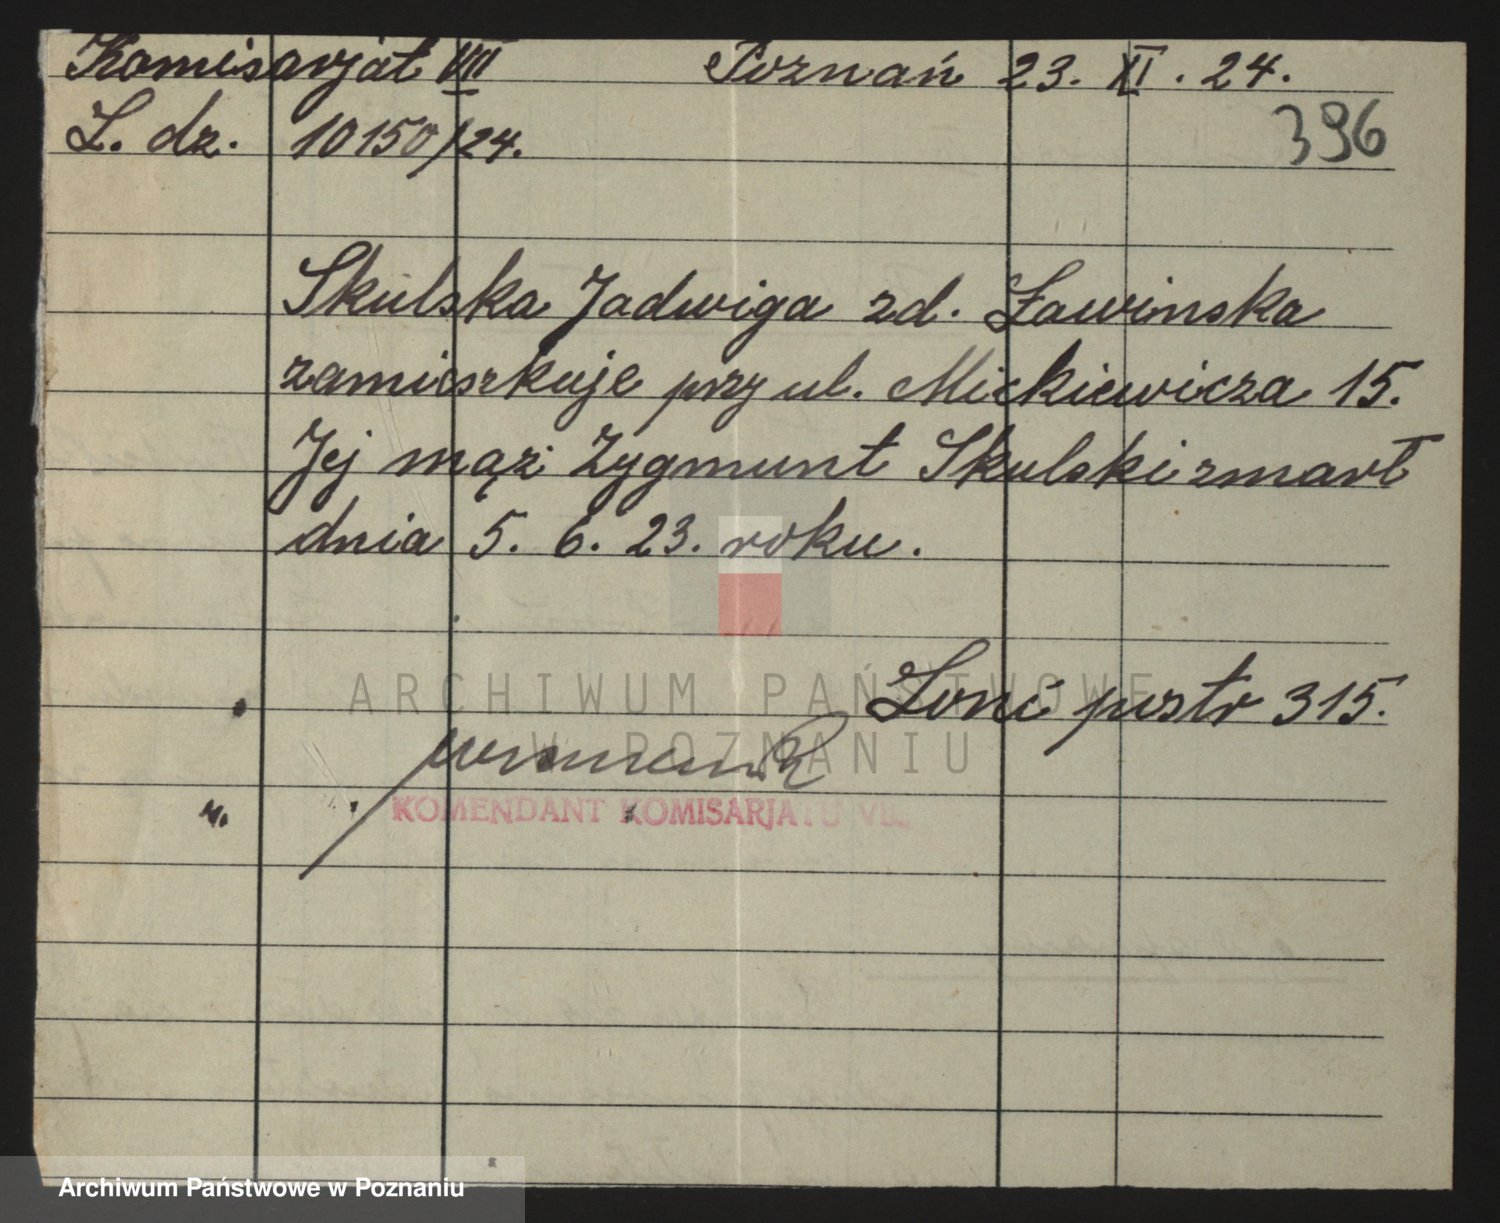 Komisarjat VIII Poznań 23. XI. 24.
L. dz. 10150/24.
396
Skulska Jadwiga zd. Ławinska
zamieszkuje przy ul. Mickiewicza 15.
Jej mąż Zygmunt Skulski zmarł
dnia 5. 6. 23. roku.
ARCHIWUM PAŃSTWOWE
W POZNANIU
postr 315.
KOMENDANT KOMISARJATU VII
Archiwum Państwowe w Poznaniu